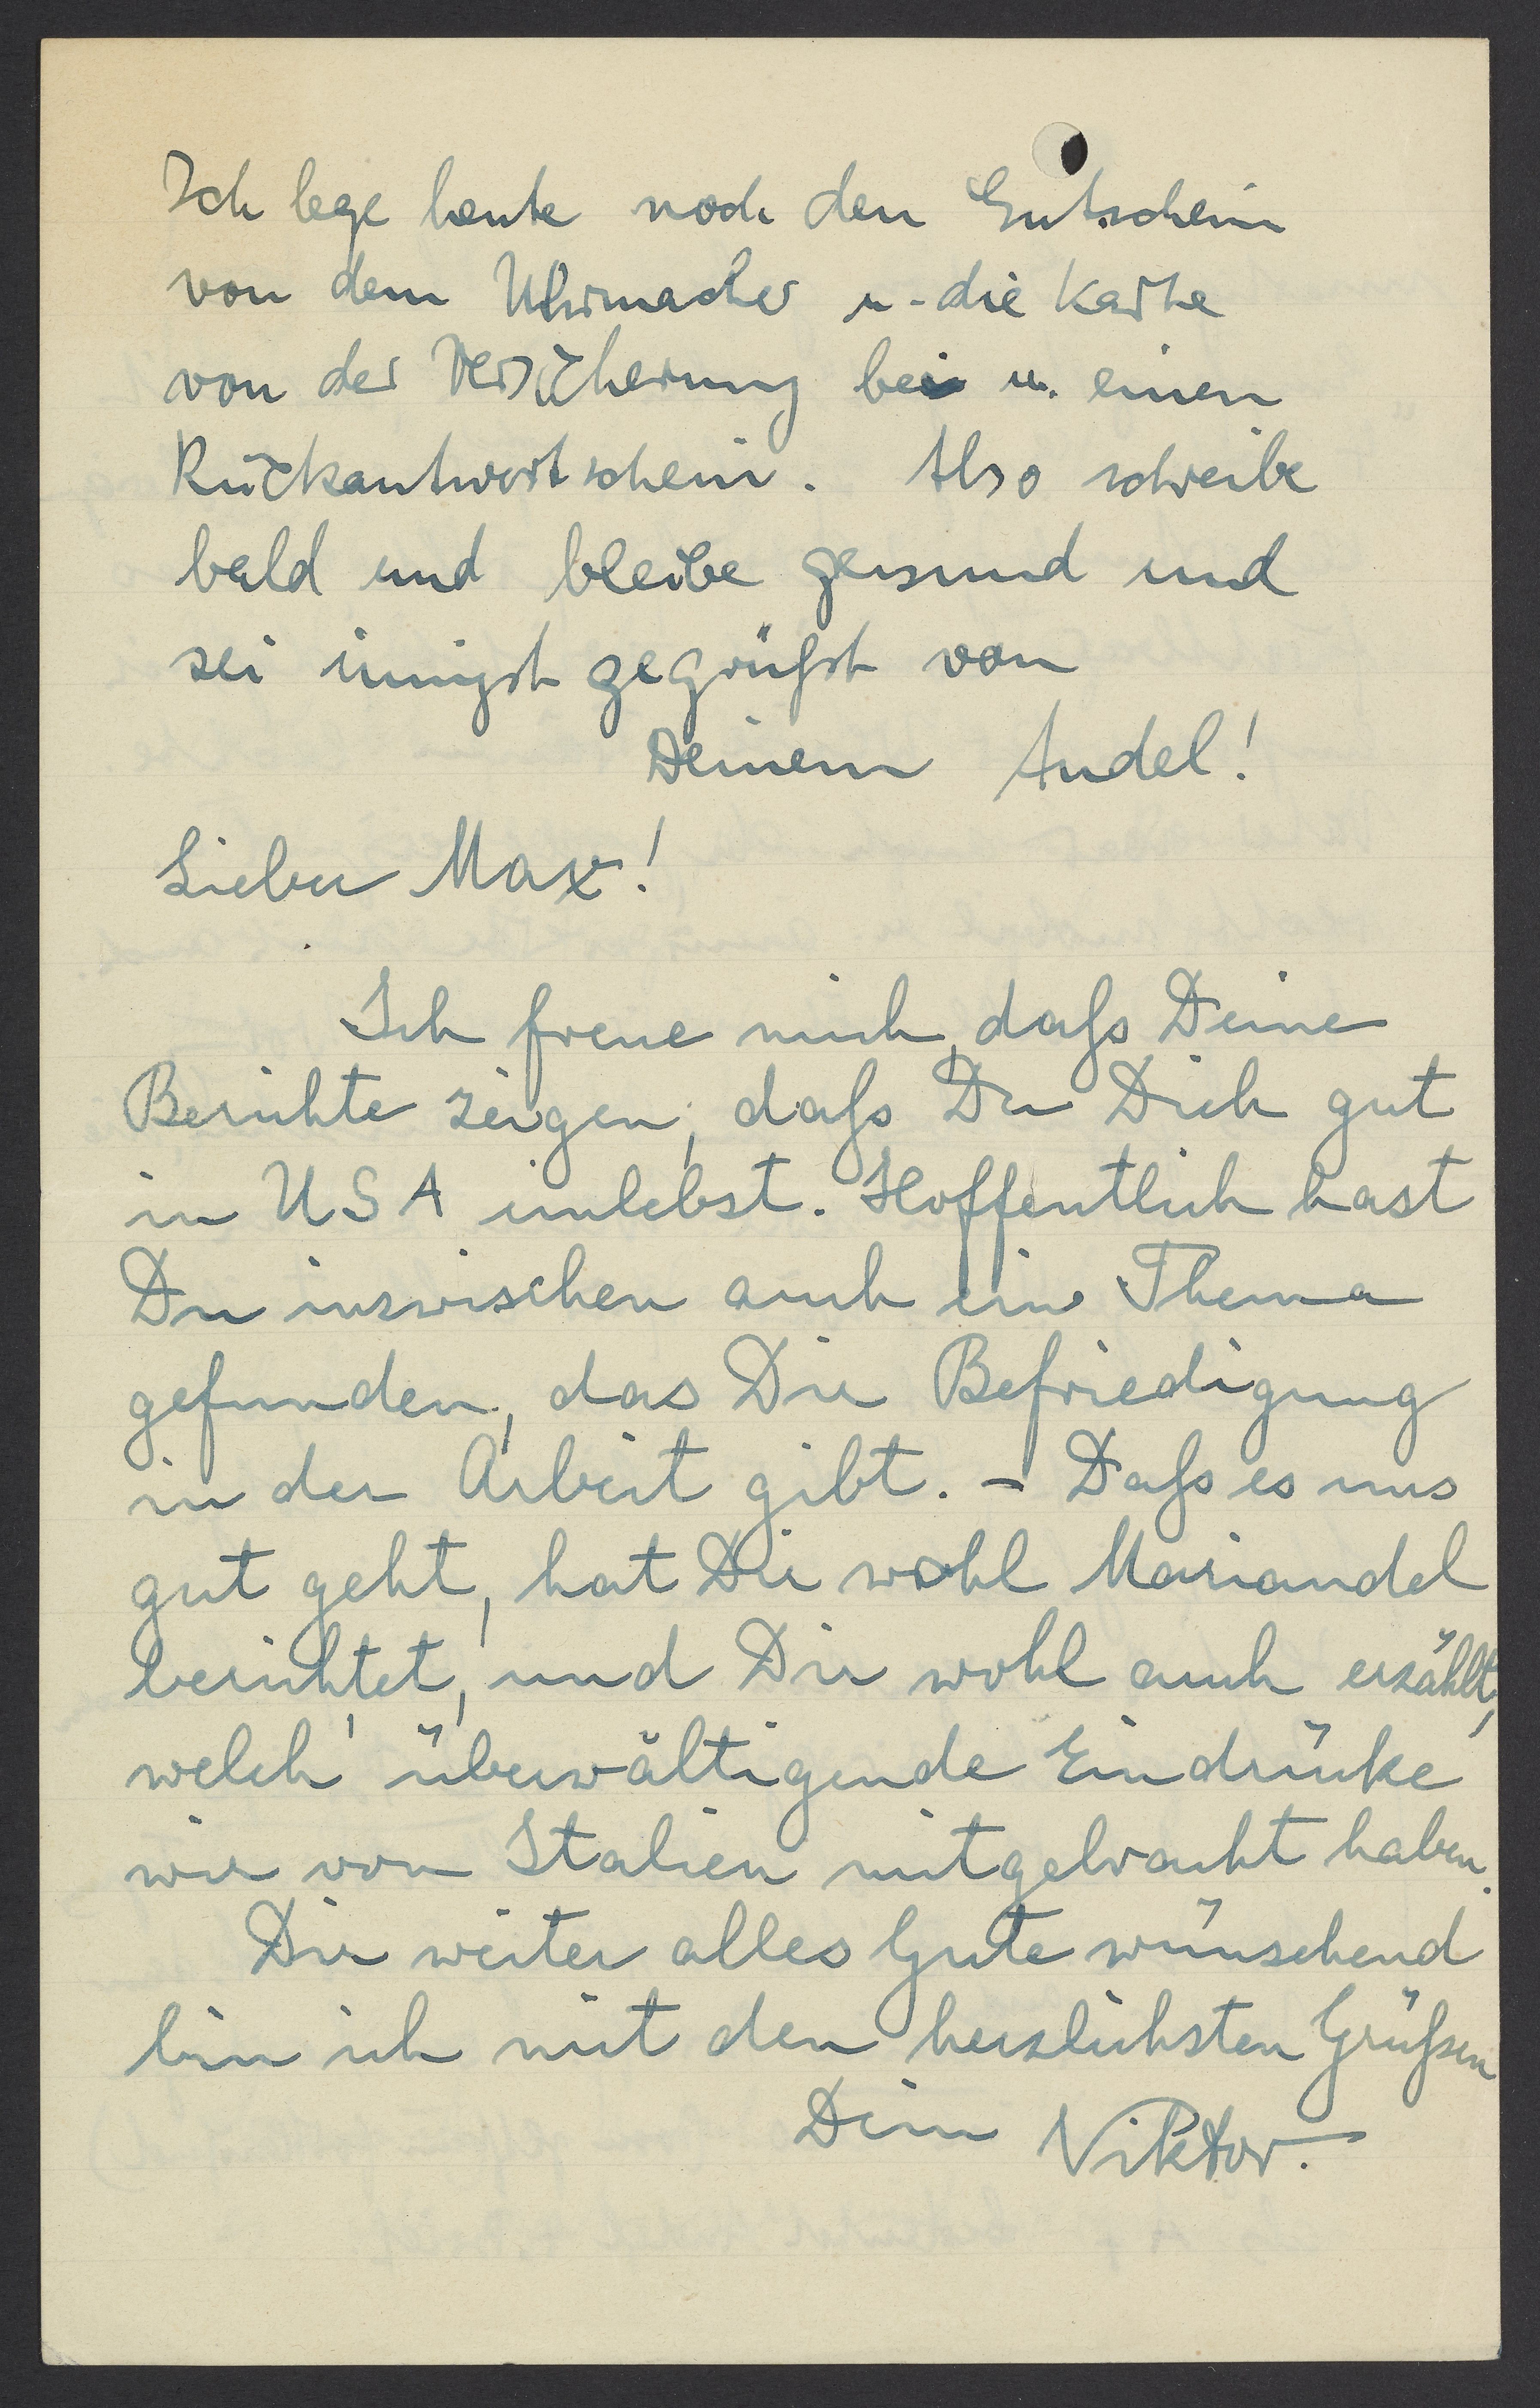 Ich lege heute noch den Gutschein
von dem Uhrmacher u. die Karte
von der Versicherung bei u. einen
Rückantwortschein. Also schreibe
bald und bleibe gesund und
sei innigst gegrüßt von
Deinem Andel!
Lieber Max!
Ich freue mich, daß Deine
Berichte zeigen, daß Du Dich gut
in USA einlebst. Hoffentlich hast
Du inzwischen auch ein Thema
gefunden, das Dir Befriedigung
in der Arbeit gibt. – Daß es uns
gut geht, hat Dir wohl Mariandel
berichtet, und Dir wohl auch erzählt,
welch' überwältigende Eindrücke
wir von Italien mitgebracht haben.
Dir weiter alles Gute wünschend
bin ich mit den herzlichsten Grüßen
Dein Viktor.